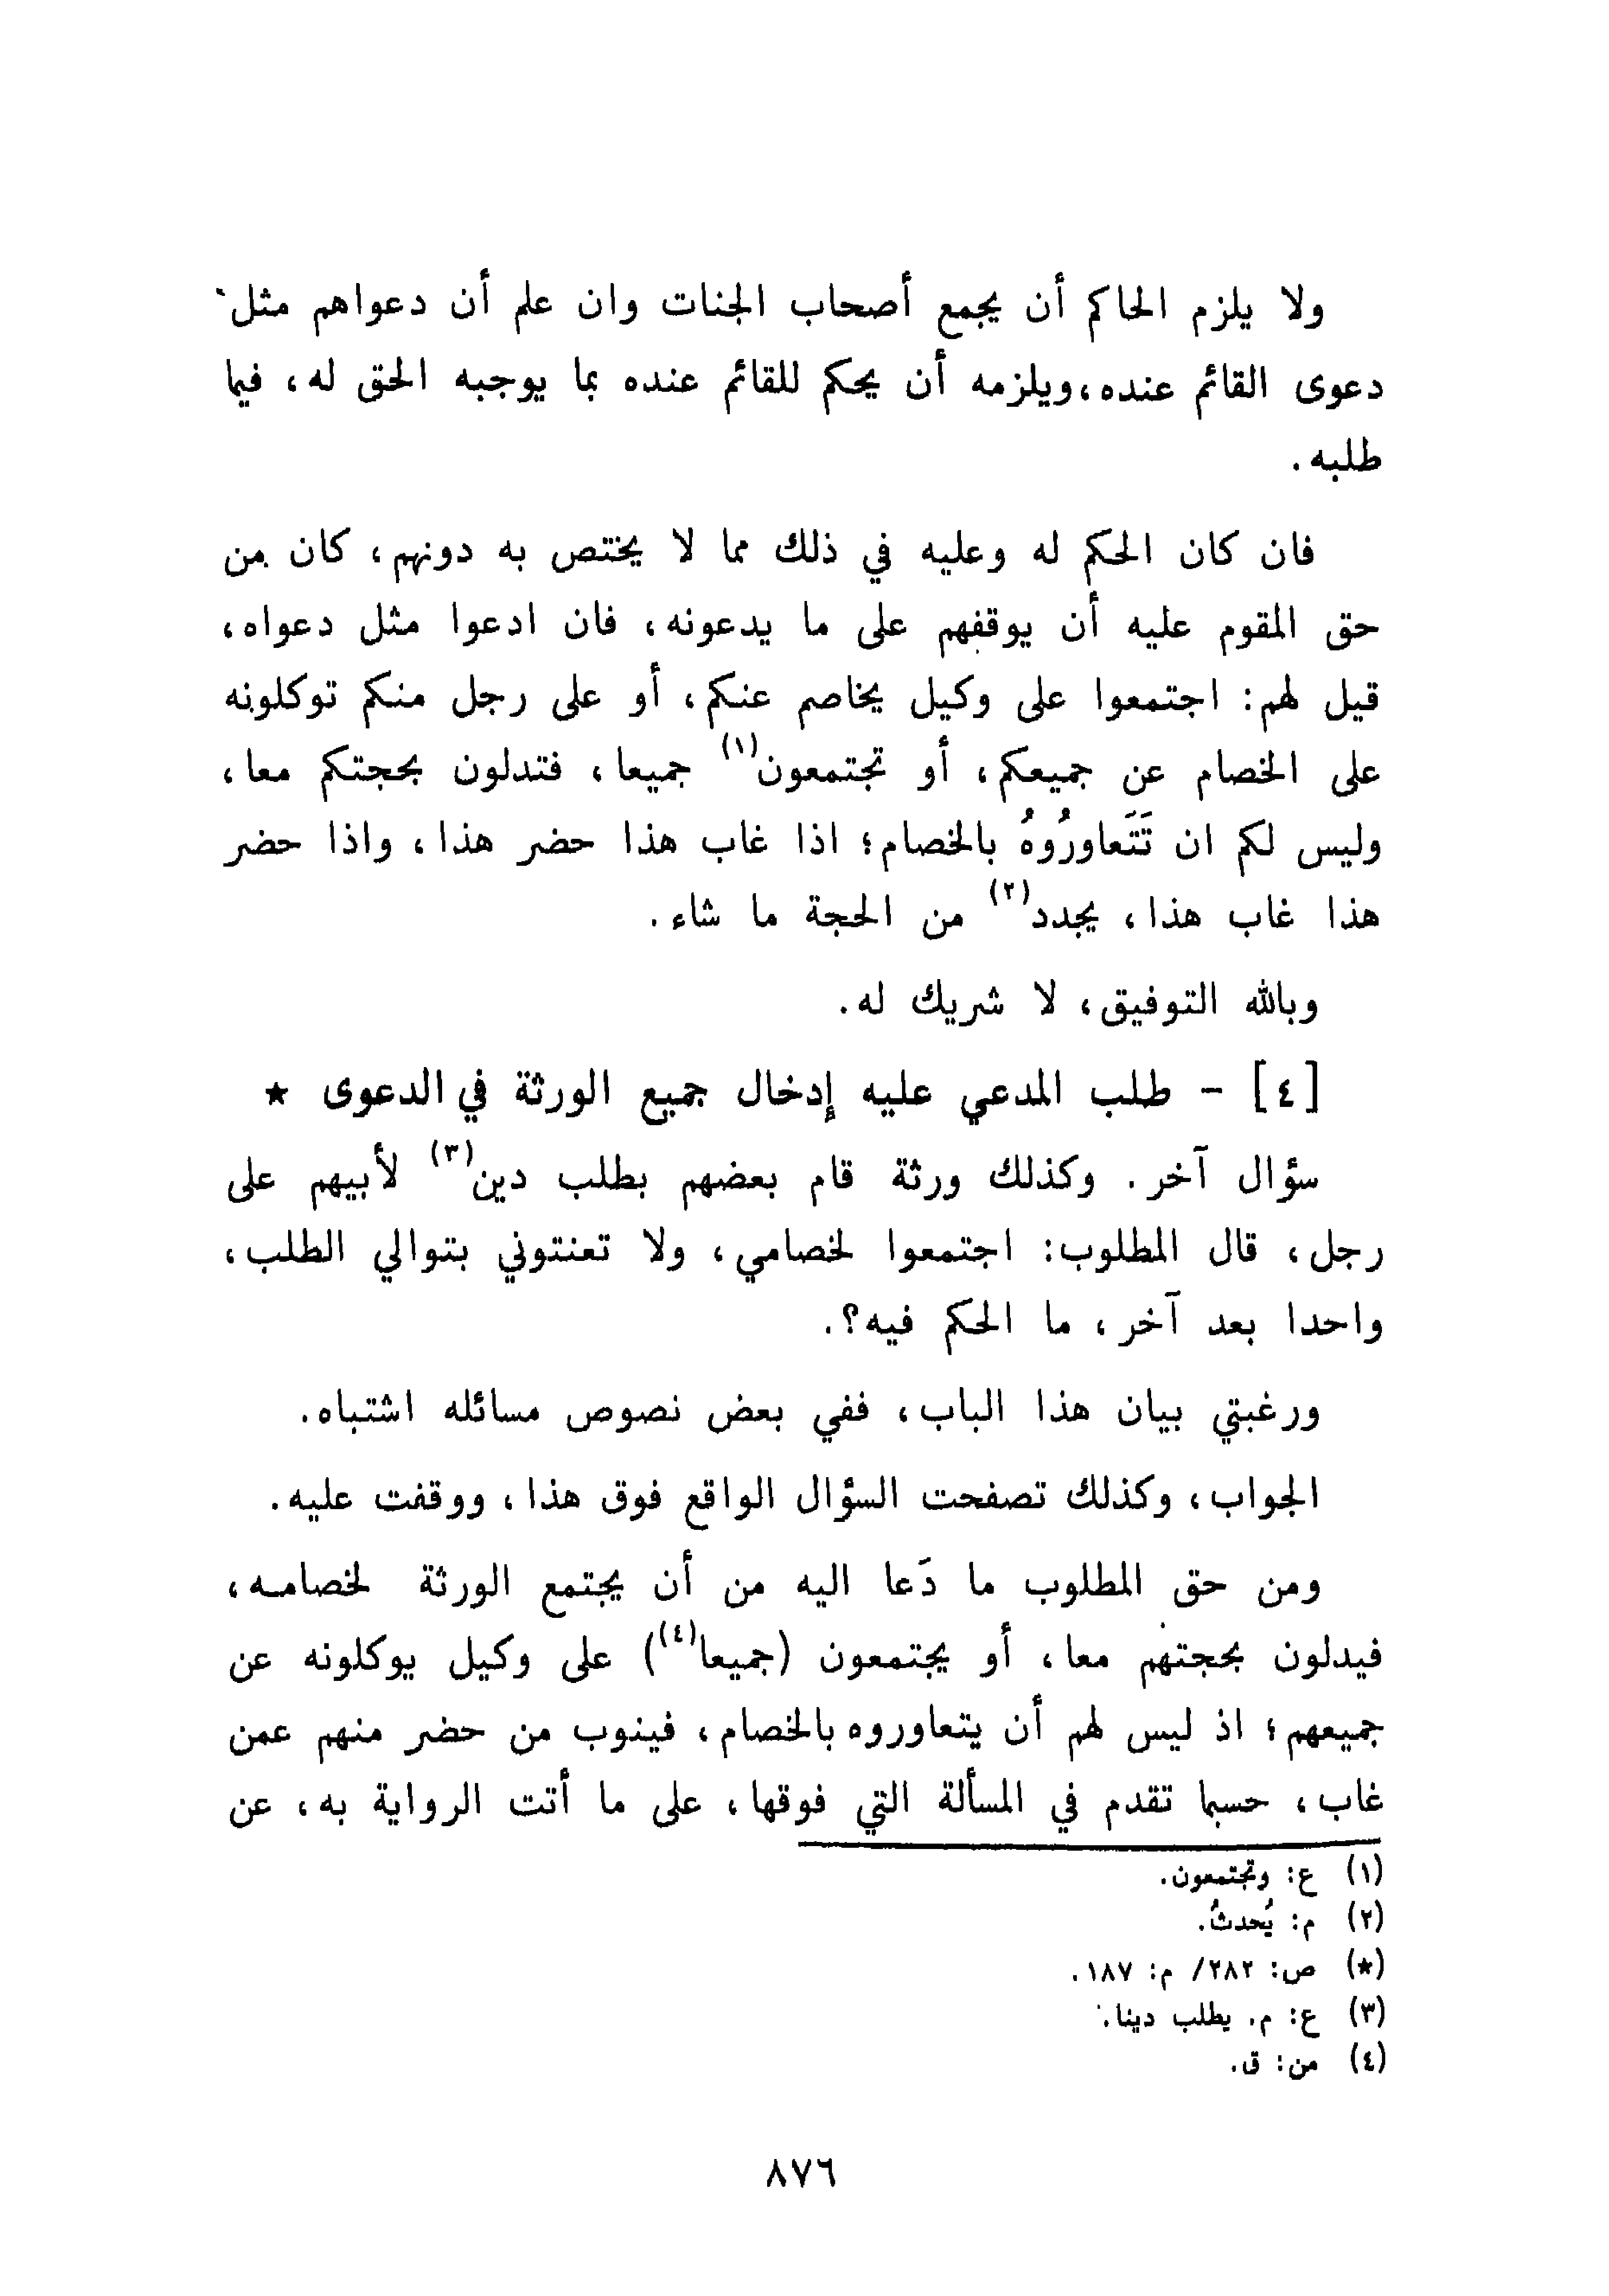 ولا يلزم الحاكم أن يجمع أصحاب الجنات وان علم أن دعواهم مثل
دعوى القائم عنده، ويلزمه أن يحكم للقائم عنده بما يوجبه الحق له، فيما
طلبه.
فان كان الحكم له وعليه في ذلك مما لا يختص به دونهم، كان من
حق المقوم عليه أن يوقفهم على ما يدعونه، فان ادعوا مثل دعواه،
قيل لهم: اجتمعوا على وكيل يخاصم عنكم، أو على رجل منكم توكلونه
على الخصام عن جميعكم، أو تجتمعون(١) جميعا، فتدلون بحجتكم معا،
وليس لكم ان تَتَعاورُوهُ بالخصام؛ اذا غاب هذا حضر هذا، واذا حضر
هذا غاب هذا، يجدد(٢) من الحجة ما شاء.
وبالله التوفيق، لا شريك له.
[٤] - طلب المدعي عليه إدخال جميع الورثة في الدعوى ★
سؤال آخر. وكذلك ورثة قام بعضهم بطلب دين(٣) لأبيهم على
رجل، قال المطلوب: اجتمعوا لخصامي، ولا تعنتوني بتوالي الطلب،
واحدا بعد آخر، ما الحكم فيه؟.
ورغبتي بيان هذا الباب، ففي بعض نصوص مسائله اشتباه.
الجواب، وكذلك تصفحت السؤال الواقع فوق هذا، ووقفت عليه.
ومن حق المطلوب ما دَعا اليه من أن يجتمع الورثة لخصامه،
فيدلون بحجتهم معا، أو يجتمعون (جميعا(٤)) على وكيل يوكلونه عن
جميعهم؛ اذ ليس لهم أن يتعاوروه بالخصام، فينوب من حضر منهم عمن
غاب، حسبما تقدم في المسألة التي فوقها، على ما أتت الرواية به، عن
(١) ع: وتجتمعون.
(٢) م: يُحدثُ.
(★) ص: ٢٨٢/ م: ١٨٧.
(٣) ع: م. يطلب دينا.
(٤) من: ق.
٨٧٦